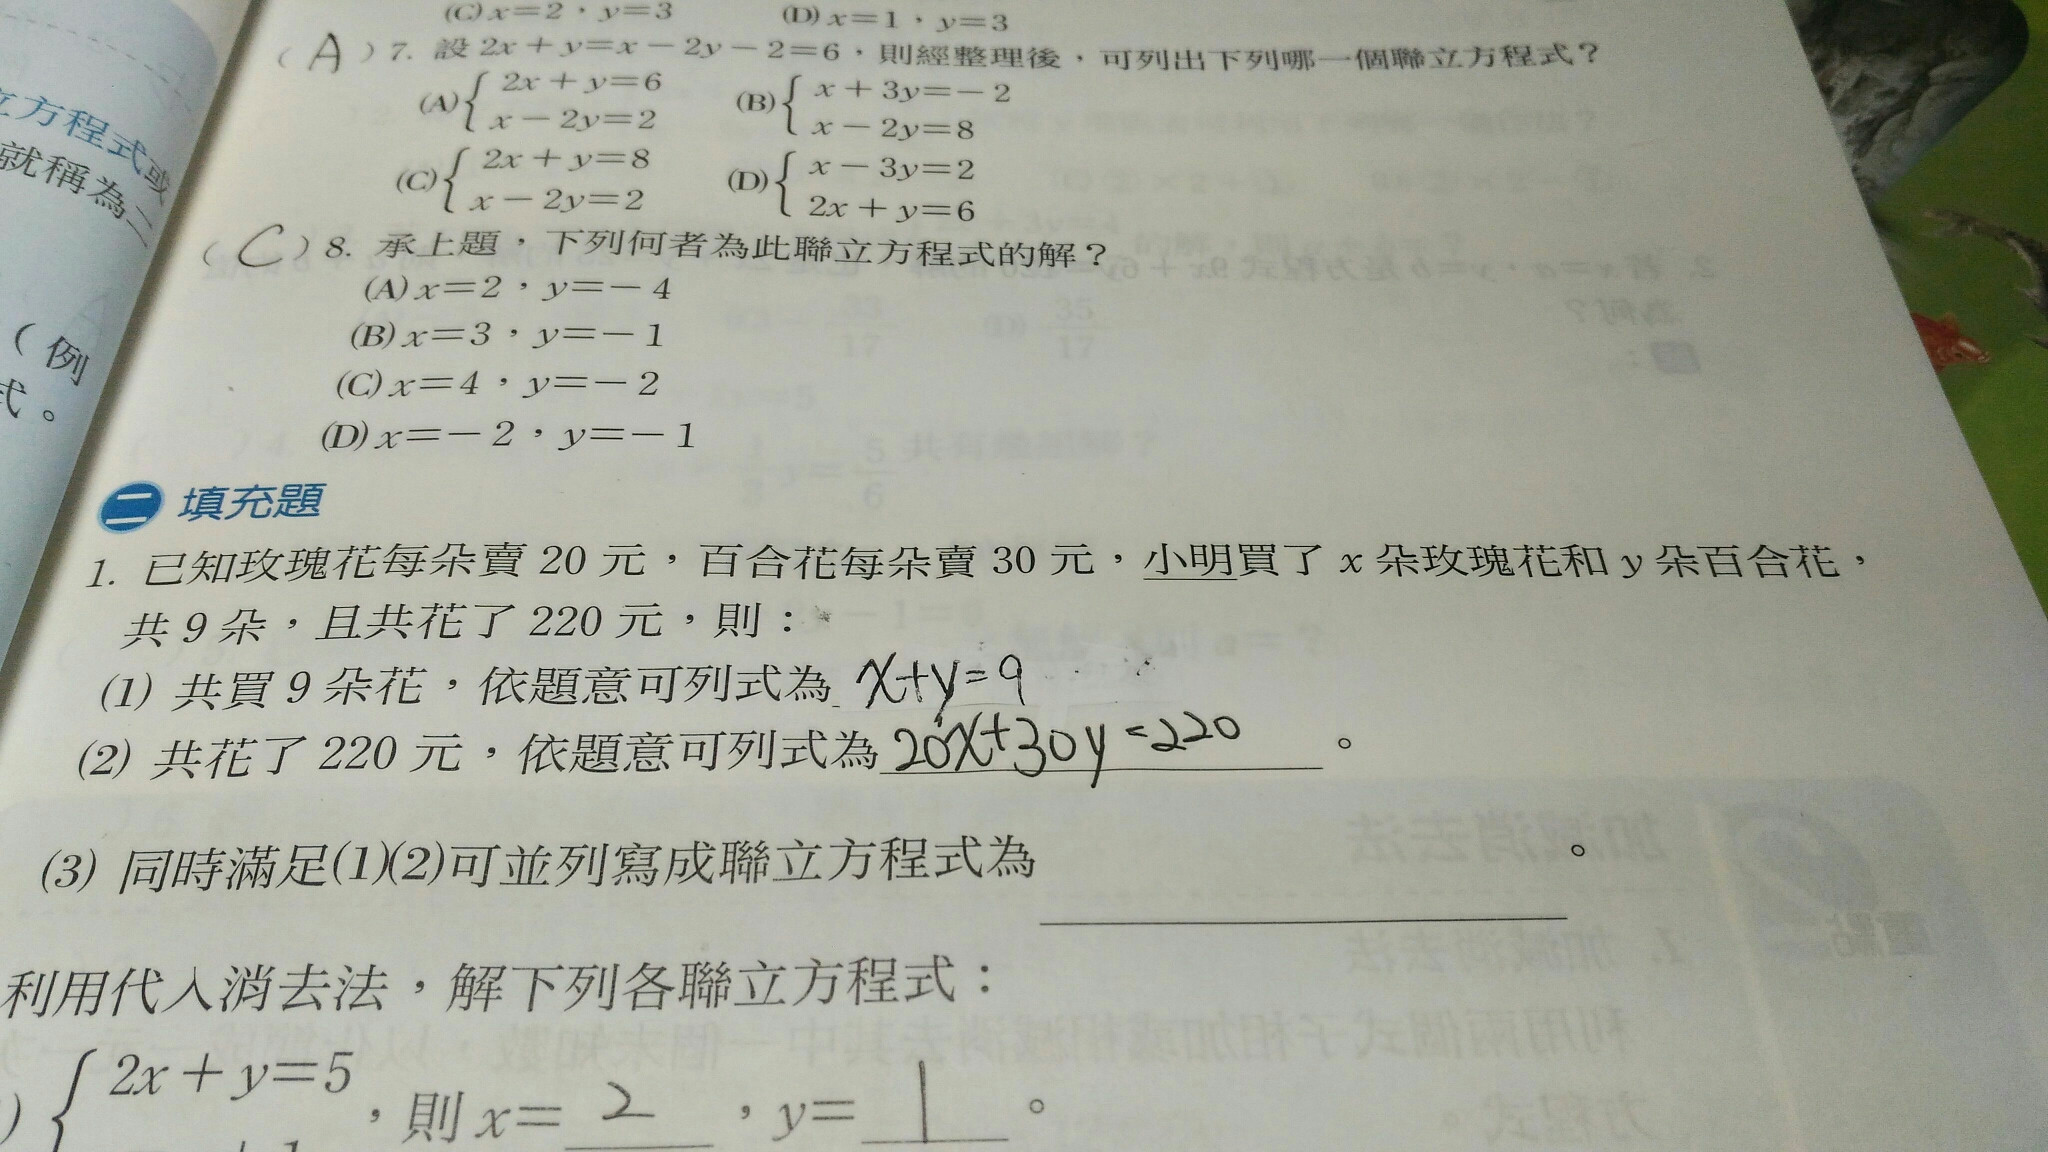 (C) x=2，y=3 (D) x=1，y=3
( A ) 7. 設 2x+y=x-2y-2=6，則經整理後，可列出下列哪一個聯立方程式？
(A) { 2x+y=6 (B) { x+3y=-2
x-2y=2 x-2y=8
(C) { 2x+y=8 (D) { x-3y=2
x-2y=2 2x+y=6
( C ) 8. 承上題，下列何者為此聯立方程式的解？
(A) x=2，y=-4
(B) x=3，y=-1
(C) x=4，y=-2
(D) x=-2，y=-1
二 填充題
1. 已知玫瑰花每朵賣 20 元，百合花每朵賣 30 元，小明買了 x 朵玫瑰花和 y 朵百合花，
共 9 朵，且共花了 220 元，則：
(1) 共買 9 朵花，依題意可列式為 x+y=9
(2) 共花了 220 元，依題意可列式為 20x+30y=220 。
(3) 同時滿足(1)(2)可並列寫成聯立方程式為 。
利用代入消去法，解下列各聯立方程式：
) { 2x+y=5 ，則 x= 2 ，y= 1 。
立方程式或
就稱為二
（例
式。